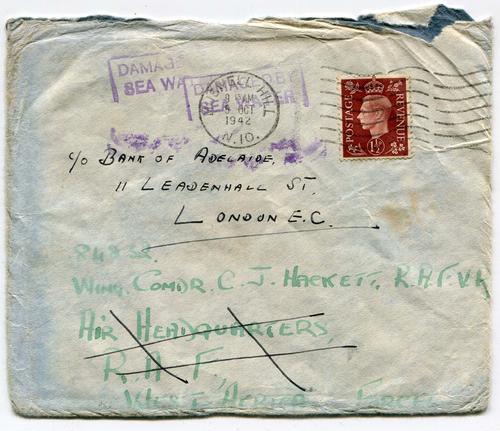 DAMAGED
SEA WA
DAMAGED BY
SEA WATER
MUSWELL HILL
8 AM
9 OCT
1942
N.10.
POSTAGE REVENUE
1½
c/o BANK OF ADELAIDE,
11 LEADENHALL ST.
LONDON E.C.
WING COMDR. C. J. HACKETT, R.A.F.V.R
AIR HEADQUARTERS,
R.A.F.,
WEST AFRICA FORCE